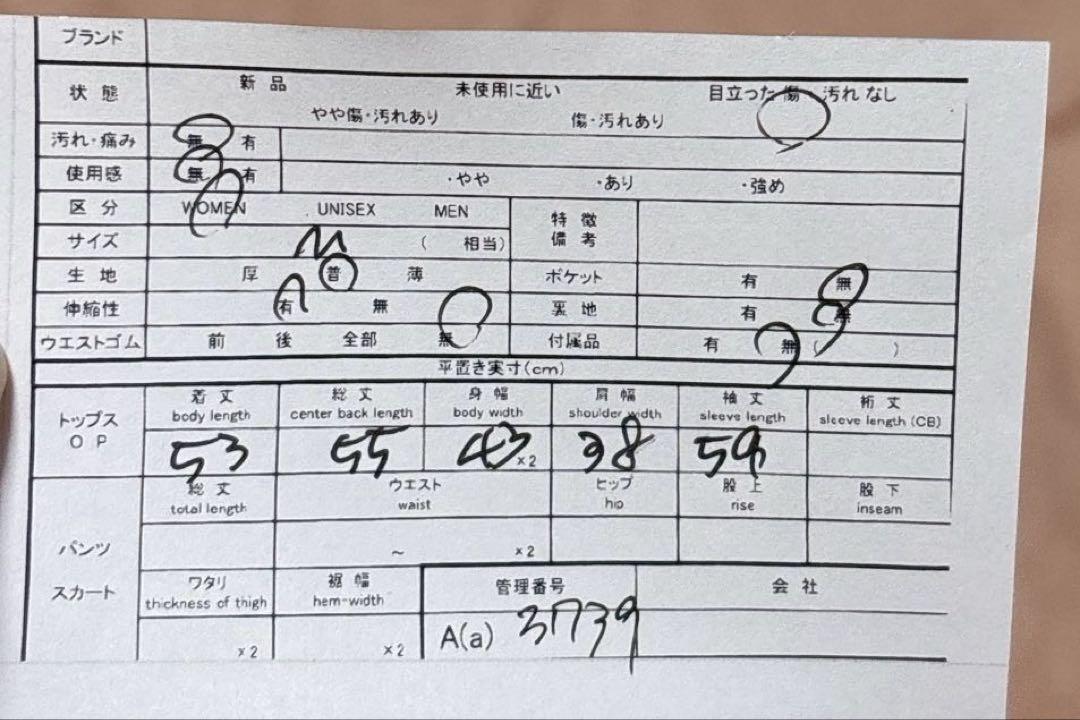 ブランド
状態 新品 未使用に近い 目立った傷・汚れなし
やや傷・汚れあり 傷・汚れあり
汚れ・痛み 無 有
使用感 無 有 ・やや ・あり ・強め
区分 WOMEN UNISEX MEN 特徴
サイズ M ( 相当) 備考
生地 厚 普 薄 ポケット 有 無
伸縮性 有 無 裏地 有 無
ウエストゴム 前 後 全部 無 付属品 有 無 ( )
平置き実寸(cm)
トップス 着丈 総丈 身幅 肩幅 袖丈 裄丈
OP body length center back length body width shoulder width sleeve length sleeve length (CB)
53 55 43 ×2 38 59
総丈 ウエスト ヒップ 股上 股下
total length waist hip rise inseam
パンツ ~ ×2
スカート ワタリ 裾幅 管理番号 会社
thickness of thigh hem-width
×2 ×2 A(a) 3739